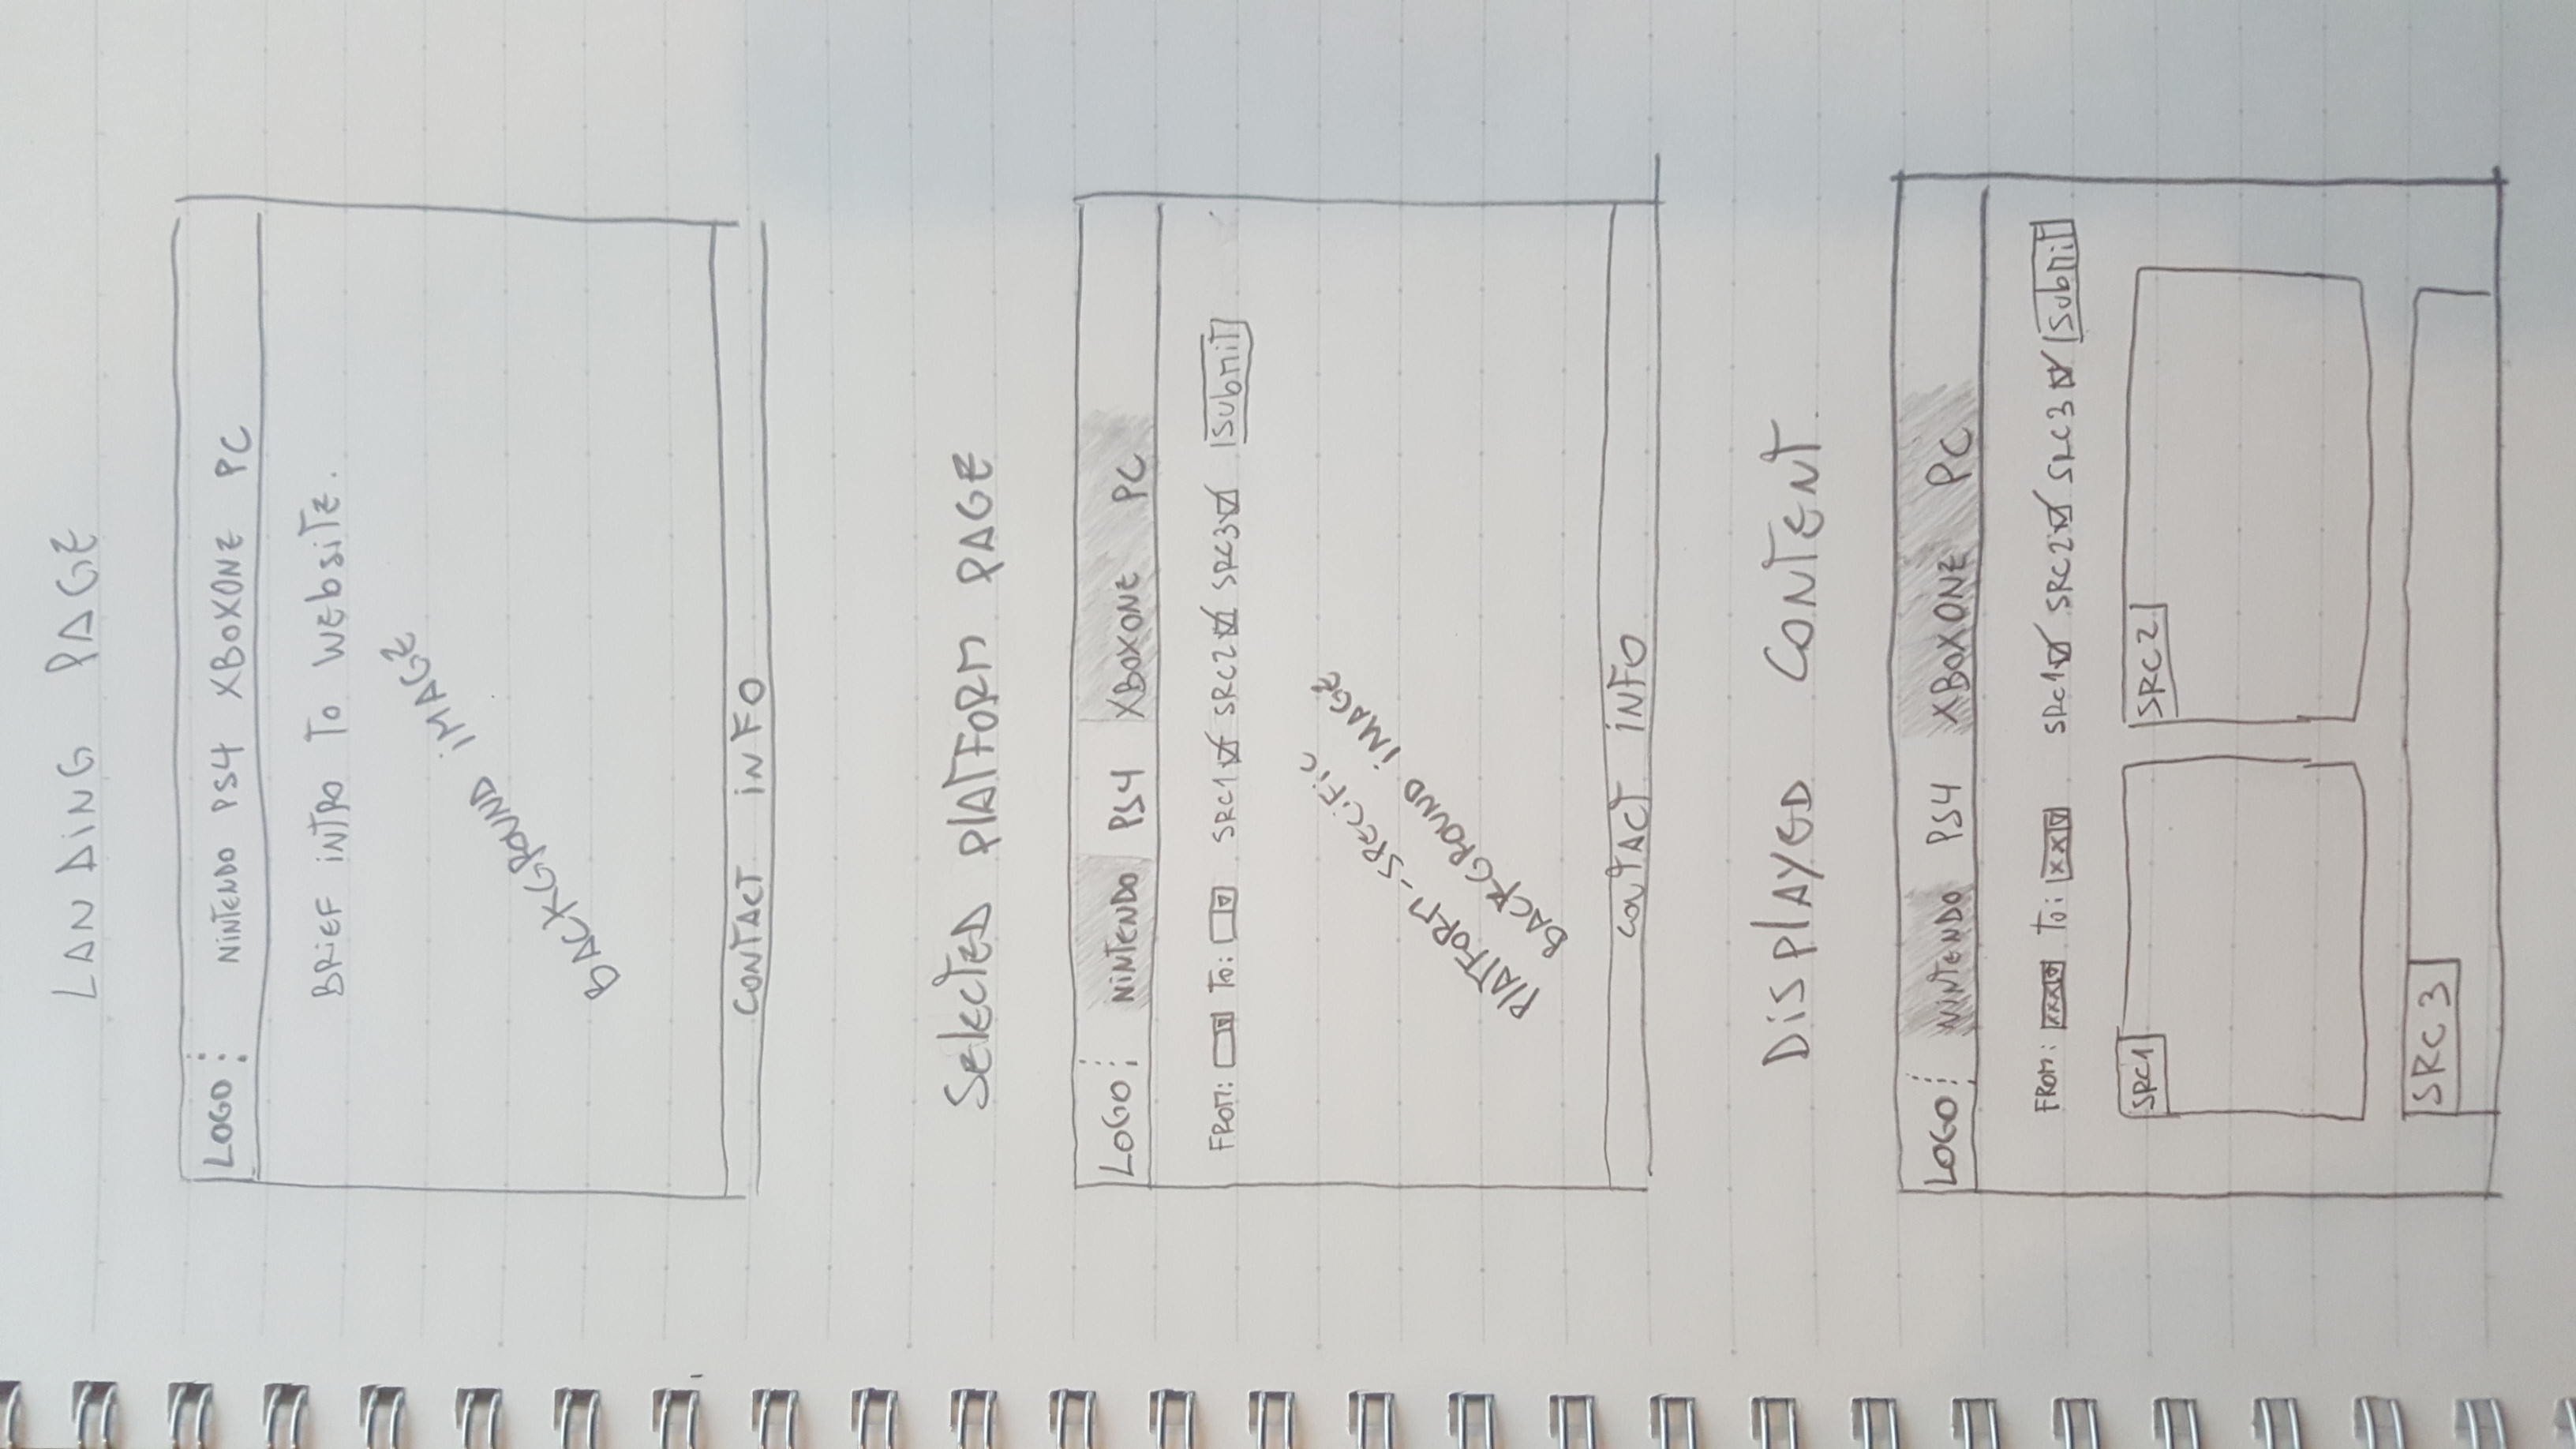 LANDiNG PAGE
LOGO NiNTENDO PS4 XBOXONE PC
BRiEF iNTRO TO WEbsiTE.
BACKGROUND iMAGE
CONTACT iNFO
SElECTED PlATFORM PAGE
LOGO NiNTENDO PS4 XBOXONE PC
FROM: TO: SRC1 SRC2 SRC3 SubmiT
PlATFORM-SPECiFiC
BACKGROUND iMAGE
CONTACT iNFO
DiSPlAYED CONTENT.
LOGO NiNTENDO PS4 XBOXONE PC
FROM: xxx TO: xx SRC1 SRC2 SRC3 SubmiT
SRC1 SRC2
SRC3